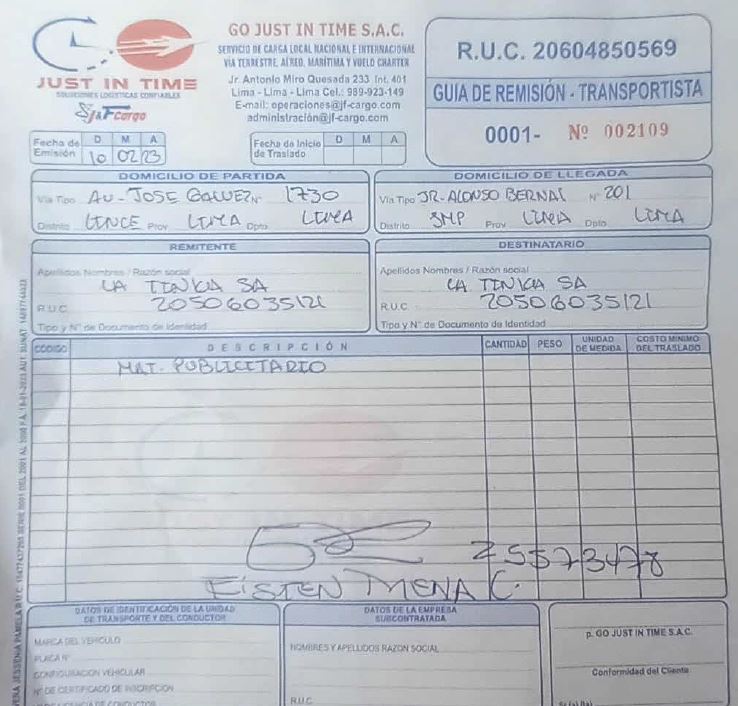 GO JUST IN TIME S.A.C.
SERVICIO DE CARGA LOCAL NACIONAL E INTERNACIONAL
VIA TERRESTRE, AEREO, MARITIMA Y VUELO CHARTER
Jr. Antonio Miro Quesada 233 Int. 401
Lima - Lima - Lima Cel.: 989-923-149
E-mail: operaciones@jf-cargo.com
administración@jf-cargo.com
JUST IN TIME
SOLUCIONES LOGISTICAS CONFIABLES
J&F Cargo
R.U.C. 20604850569
GUIA DE REMISIÓN - TRANSPORTISTA
0001- Nº 002109
Fecha de Emisión D M A
10 02 23
Fecha de Inicio de Traslado D M A
DOMICILIO DE PARTIDA
Vía Tipo AV. JOSE GALVEZ Nº 1730
Distrito LINCE Prov LIMA Dpto LIMA
DOMICILIO DE LLEGADA
Vía Tipo JR. ALONSO BERNAL Nº 201
Distrito SMP Prov LIMA Dpto LIMA
REMITENTE
Apellidos Nombres / Razón social
LA TINKA SA
R.U.C. 20506035121
Tipo y Nº de Documento de Identidad
DESTINATARIO
Apellidos Nombres / Razón social
LA TINKA SA
R.U.C. 20506035121
Tipo y Nº de Documento de Identidad
CODIGO DESCRIPCIÓN CANTIDAD PESO UNIDAD DE MEDIDA COSTO MINIMO DEL TRASLADO
MAT. PUBLICITARIO
75573478
EISTEN MENA C.
DATOS DE IDENTIFICACIÓN DE LA UNIDAD
DE TRANSPORTE Y DEL CONDUCTOR
MARCA DEL VEHICULO
PLACA Nº
CONFIGURACION VEHICULAR
Nº DE CERTIFICADO DE INSCRIPCION
DATOS DE LA EMPRESA
SUBCONTRATADA
NOMBRES Y APELLIDOS RAZON SOCIAL
R.U.C.
p. GO JUST IN TIME S.A.C.
Conformidad del Cliente